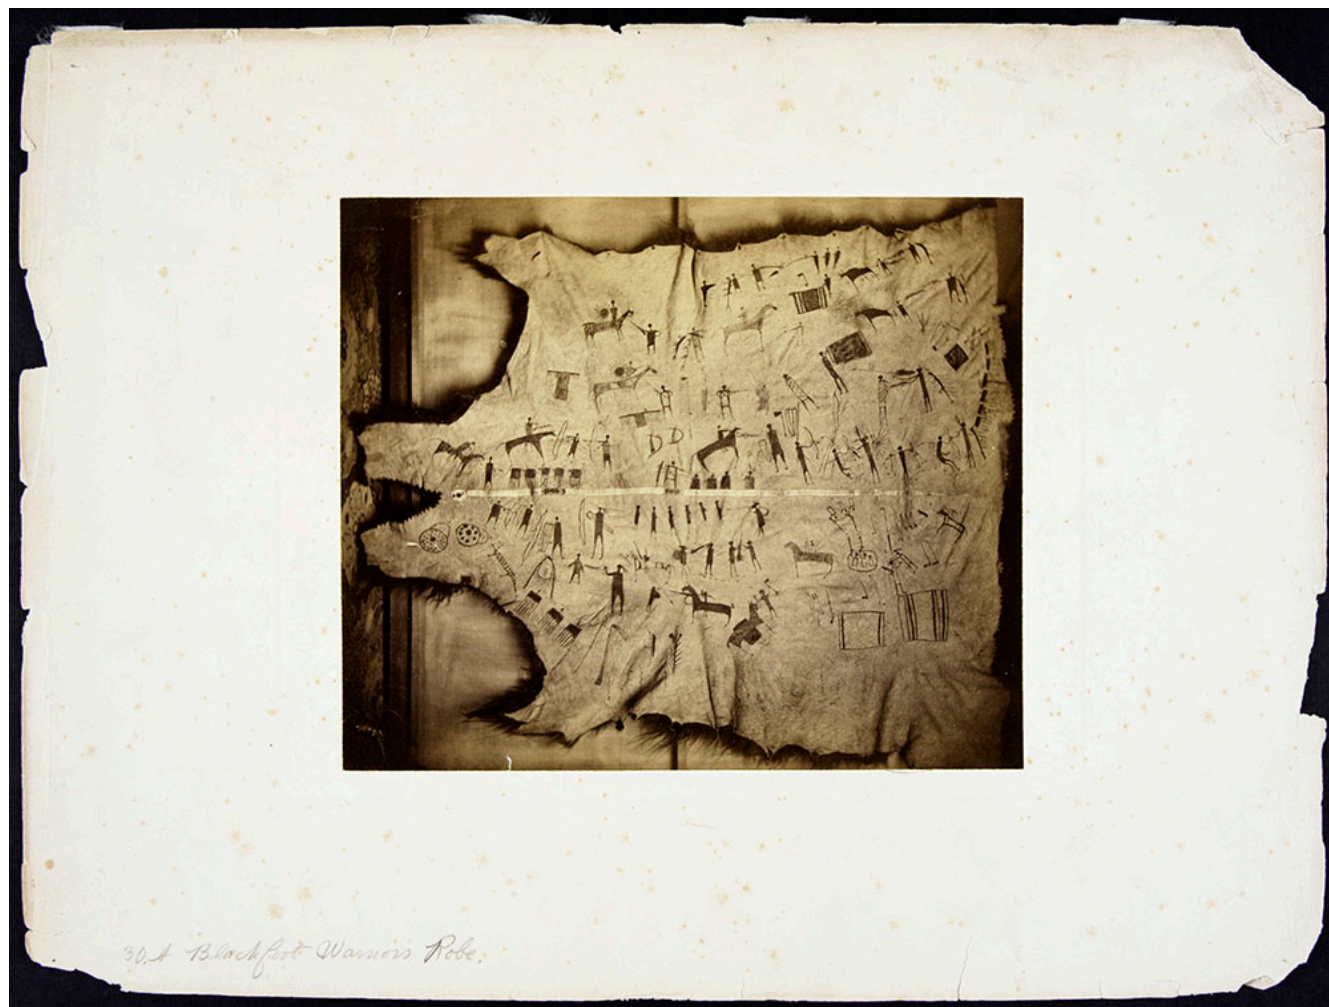 30. A Blackfoot Warrior's Robe.